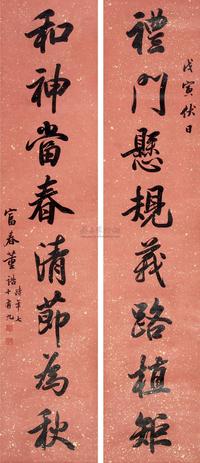 戊寅伏日
禮門懸規義路植矩
和神當春清節為秋
富春董誥
時年七十有九